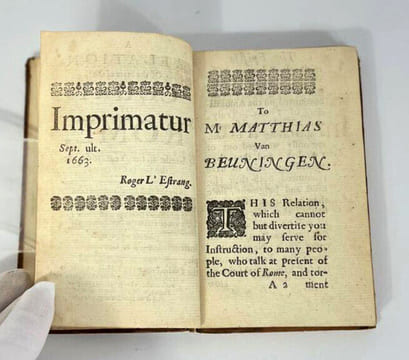 Imprimatur
Sept. ult.
1663.
Roger L' Estrang.
To
Mr MATTHIAS
Van
BEUNINGEN.
THIS Relation,
which cannot
but divertize you
may serve for
Instruction, to many peo-
ple, who talk at present of
the Court of Rome, and tor-
A 2 ment